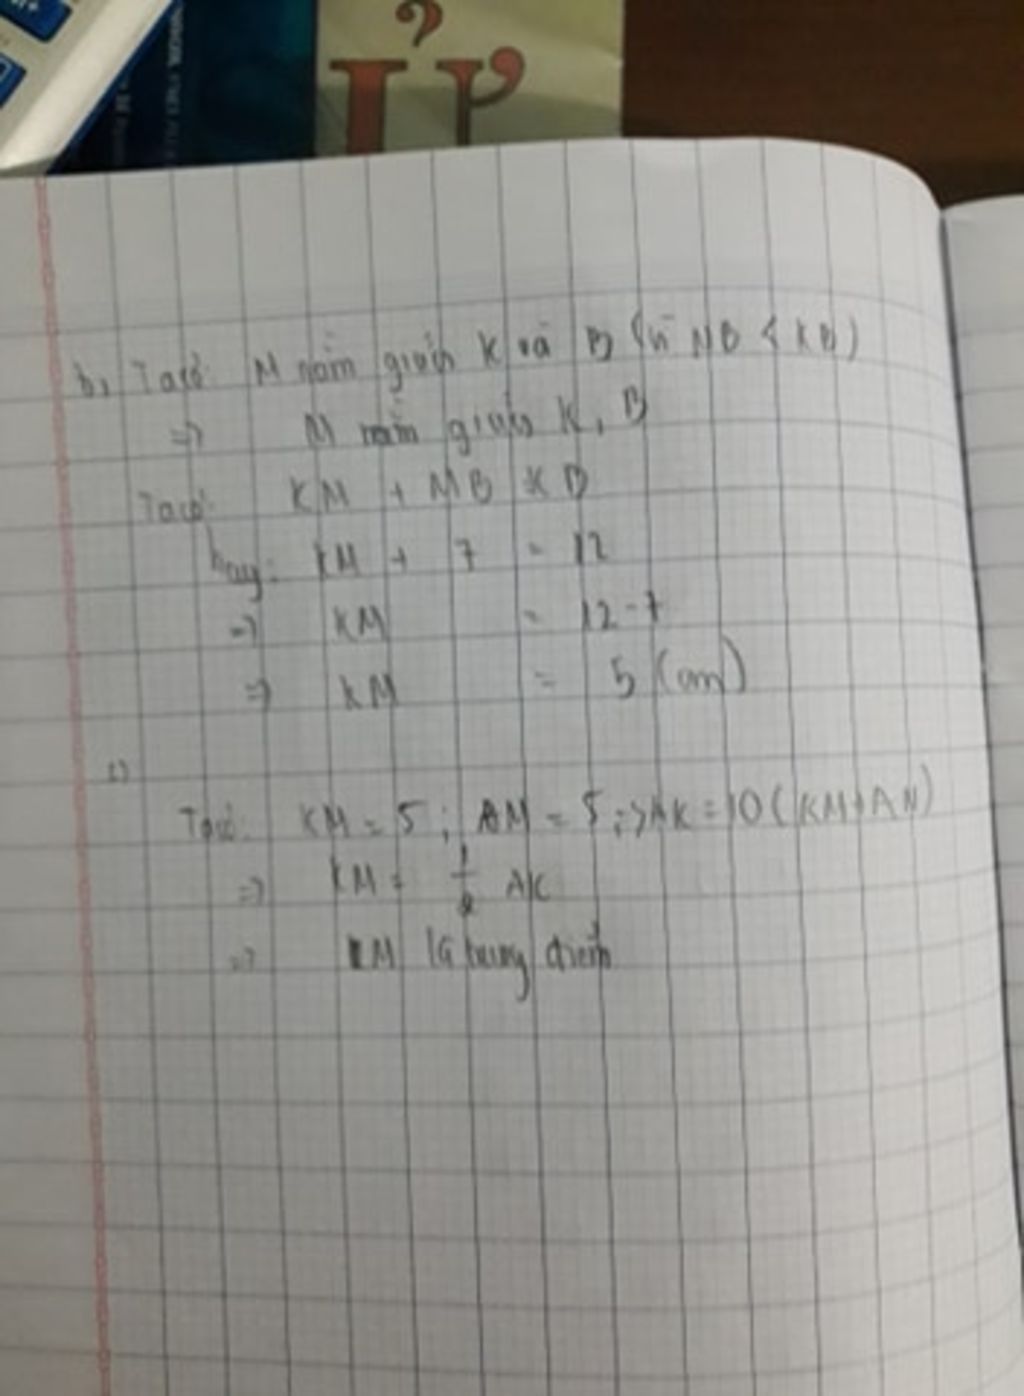 Ử
b, Ta có: M nằm giữa K và B (vì MB < KB)
=> M nằm giữa K, B
Ta có: KM + MB KB
hay: KM + 7 = 12
=> KM = 12 - 7
=> KM = 5 (cm)
c)
Ta có: KM = 5 ; AM = 5 ; => AK = 10 (KM + AM)
=> KM = 1/2 AK
=> KM là trung điểm